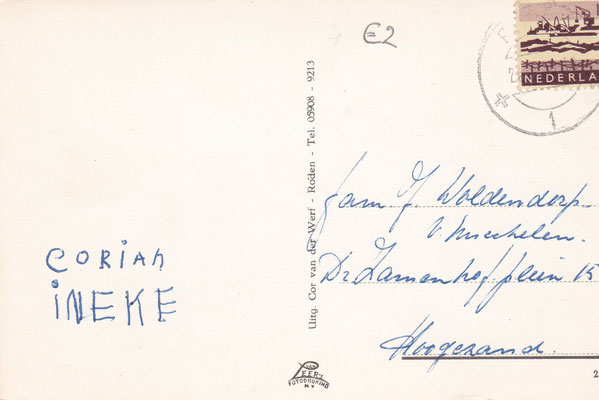 €2
NEDERLA
1
CORiAN
iNEKE
Uitg. Cor van der Werf - Roden - Tel. 05908 - 9213
Fam J. Woldendorp-
v. Mechelen.
Dr Zamenhofplein 15
Hoogezand.
VAN
LEER'S
FOTODRUKIND
N V
2